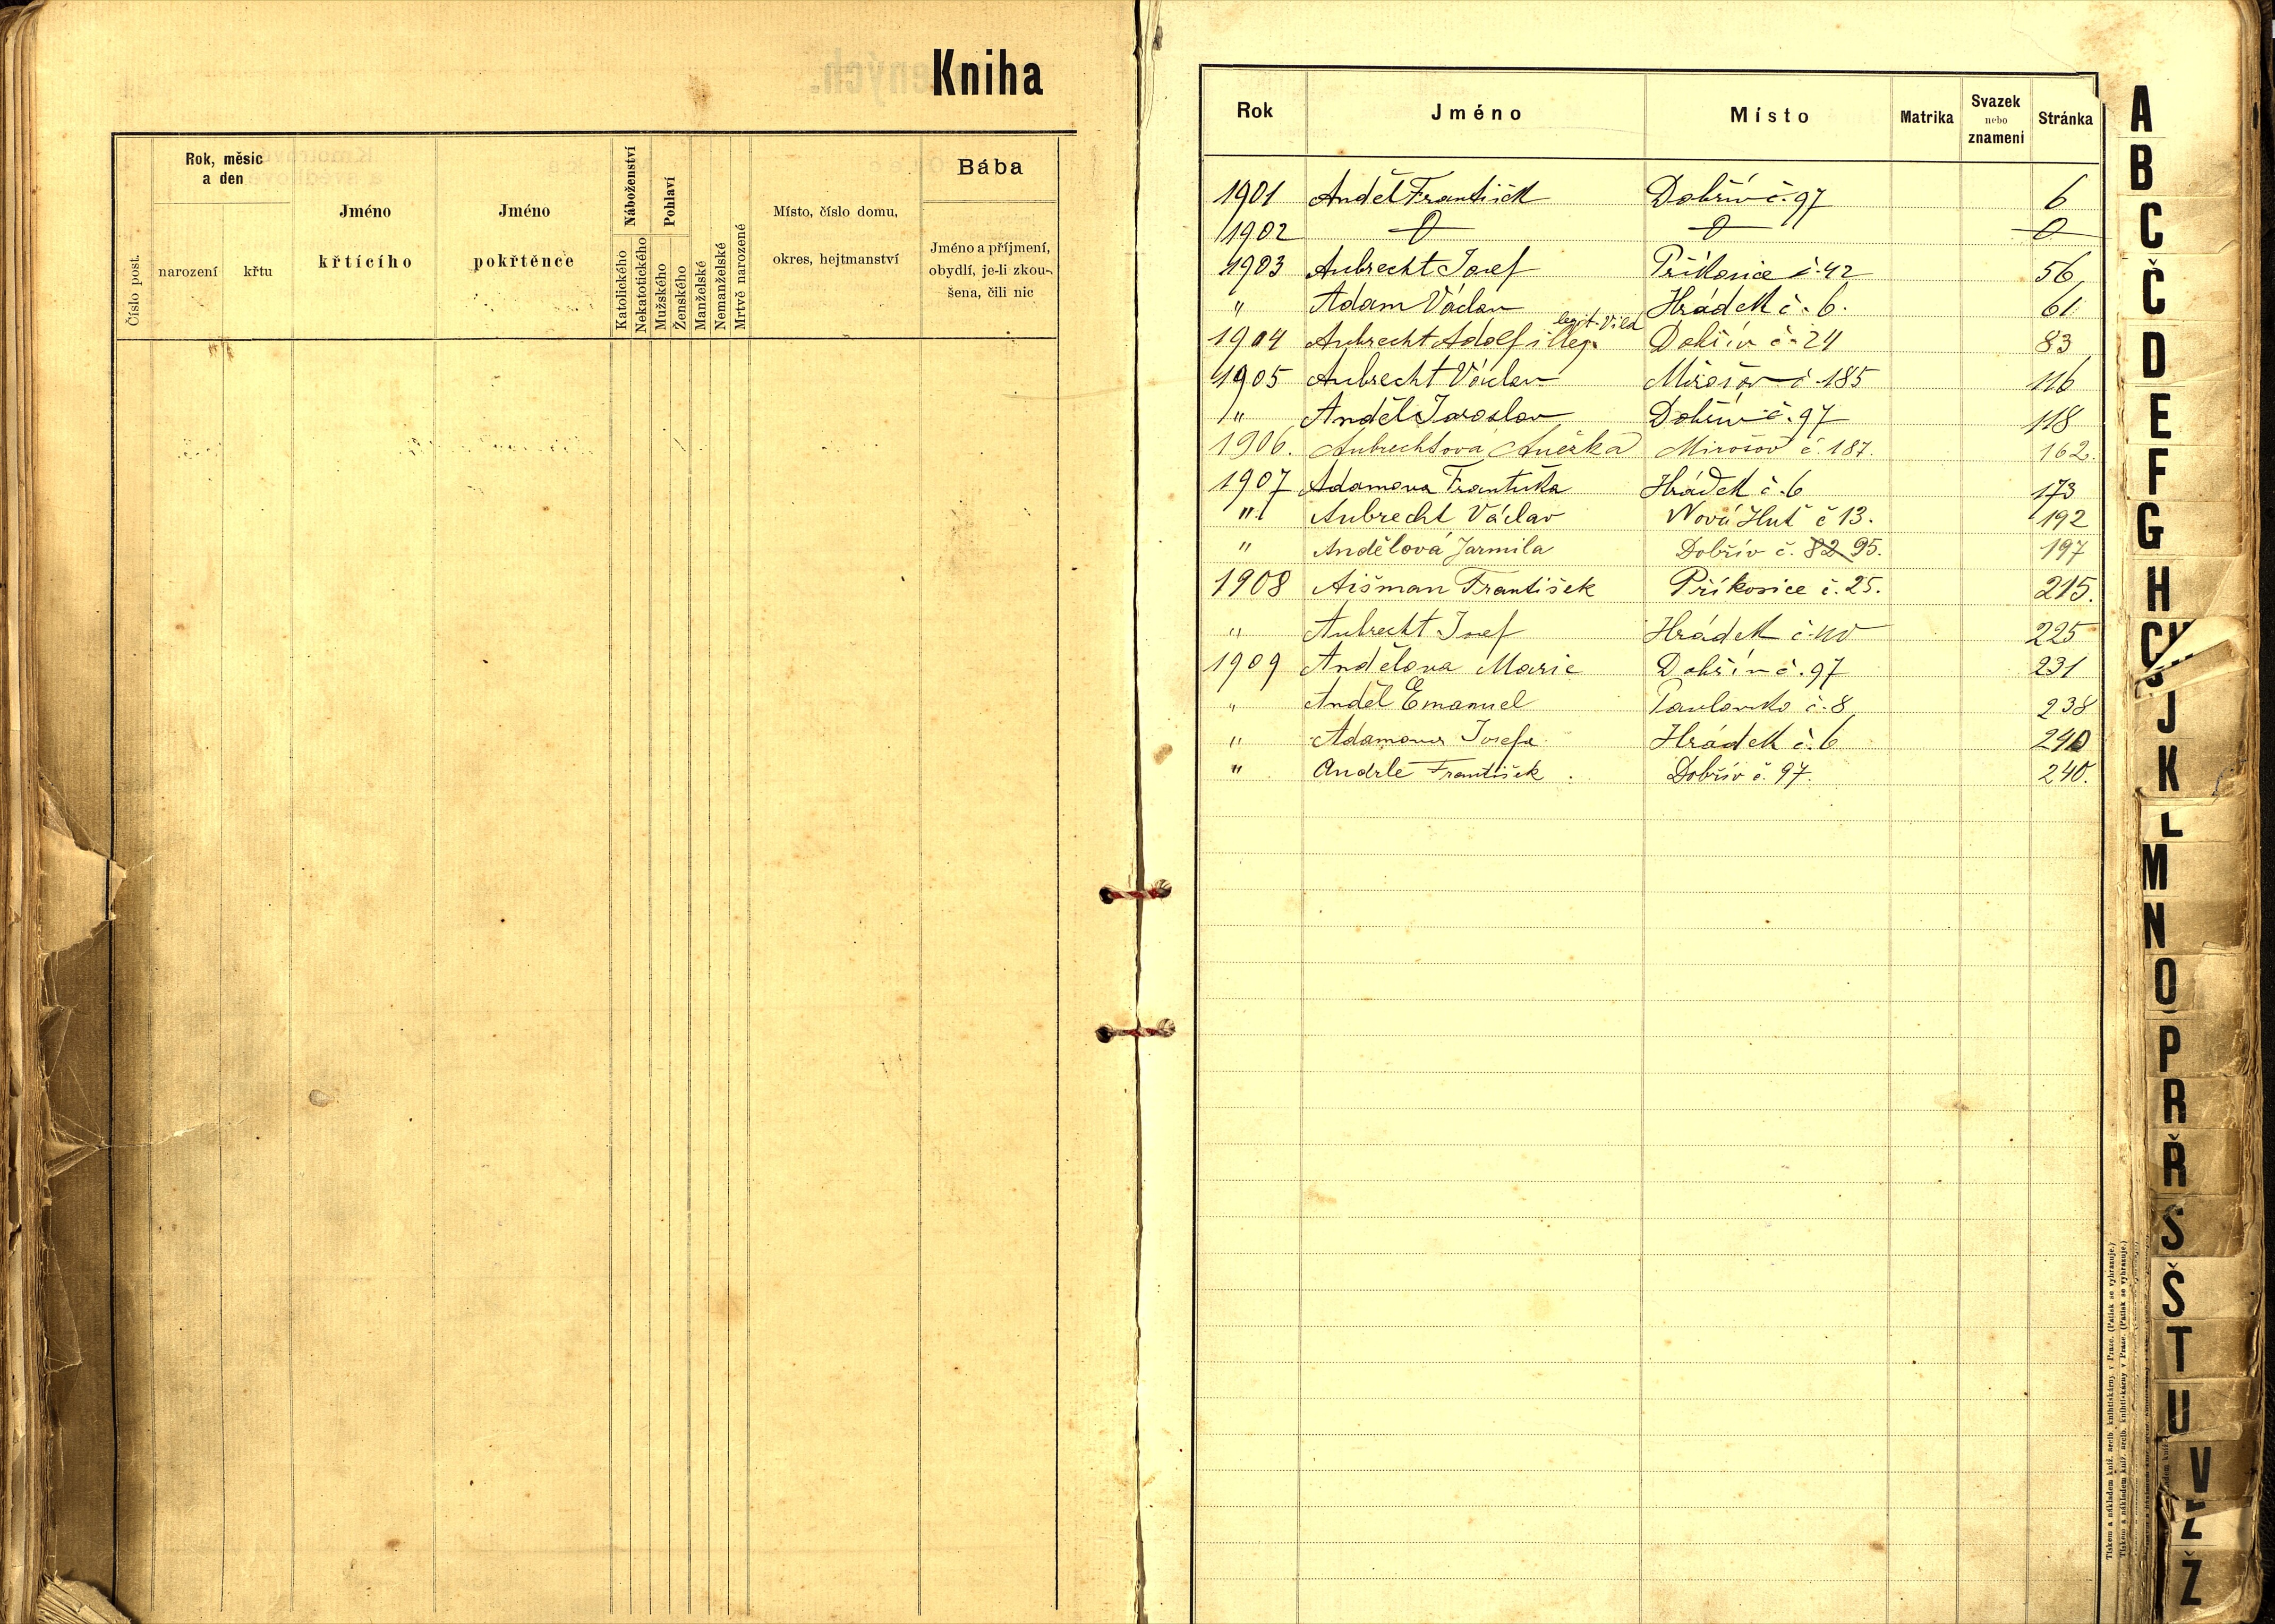 Kniha
Číslo post.
Rok, měsíc
a den
narození
křtu
Jméno
křtícího
Jméno
pokřtěnce
Náboženství
Katolického
Nekatotického
Pohlaví
Mužského
Ženského
Manželské
Nemanželské
Mrtvě narozené
Místo, číslo domu,
okres, hejtmanství
Bába
Jméno a příjmení,
obydlí, je-li zkou-
šena, čili nic
Rok Jméno Místo Matrika Svazek nebo znamení Stránka
1901 Anděl František Dobřív č. 97 6
1902 0 0 0
1903 Aubrecht Josef Příkosice č. 42 56
" Adam Václav Hrádek č. 6. 61
legit. Vild
1904 Aubrecht Adolf illeg. Dobřív č. 24 83
1905 Aubrecht Václav Mirošov č. 185 116
" Anděl Jaroslav Dobřív č. 97 118
1906. Aubrechtová Anežka Mirošov č. 187. 162.
1907 Adamova Františka Hrádek č. 6 173
" Aubrecht Václav Nová Huť č 13. 192
" Andělová Jarmila Dobřív č. 82 95. 197
1908 Aišman František Příkosice č. 25. 215.
" Aubrecht Josef Hrádek č. 225
1909 Andělova Marie Dobřív č. 97 231
" Anděl Emanuel Pavlovsko č. 8 238
" Adamova Josefa Hrádek č. 6 240
" Andrle František. Dobřív č. 97. 240.
A
B
C
Č
D
E
F
G
H
CH
J
K
L
M
N
O
P
R
Ř
S
Š
T
U
V
Z
Ž
Tiskem a nákladem kníž. arcib. knihtiskárny v Praze. (Patisk se vyhrazuje.)
Tiskem a nákladem kníž. arcib. knihtiskárny v Praze. (Patisk se vyhrazuje.)